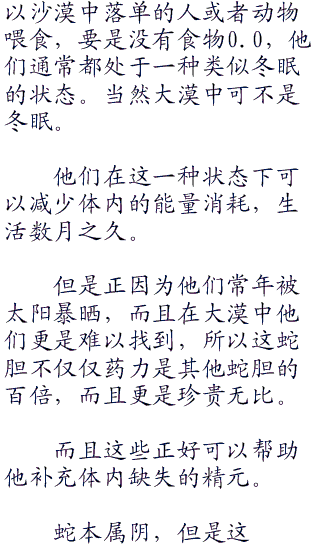 以沙漠中落单的人或者动物
喂食，要是没有食物0.0，他
们通常都处于一种类似冬眠
的状态。当然大漠中可不是
冬眠。
他们在这一种状态下可
以减少体内的能量消耗，生
活数月之久。
但是正因为他们常年被
太阳暴晒，而且在大漠中他
们更是难以找到，所以这蛇
胆不仅仅药力是其他蛇胆的
百倍，而且更是珍贵无比。
而且这些正好可以帮助
他补充体内缺失的精元。
蛇本属阴，但是这